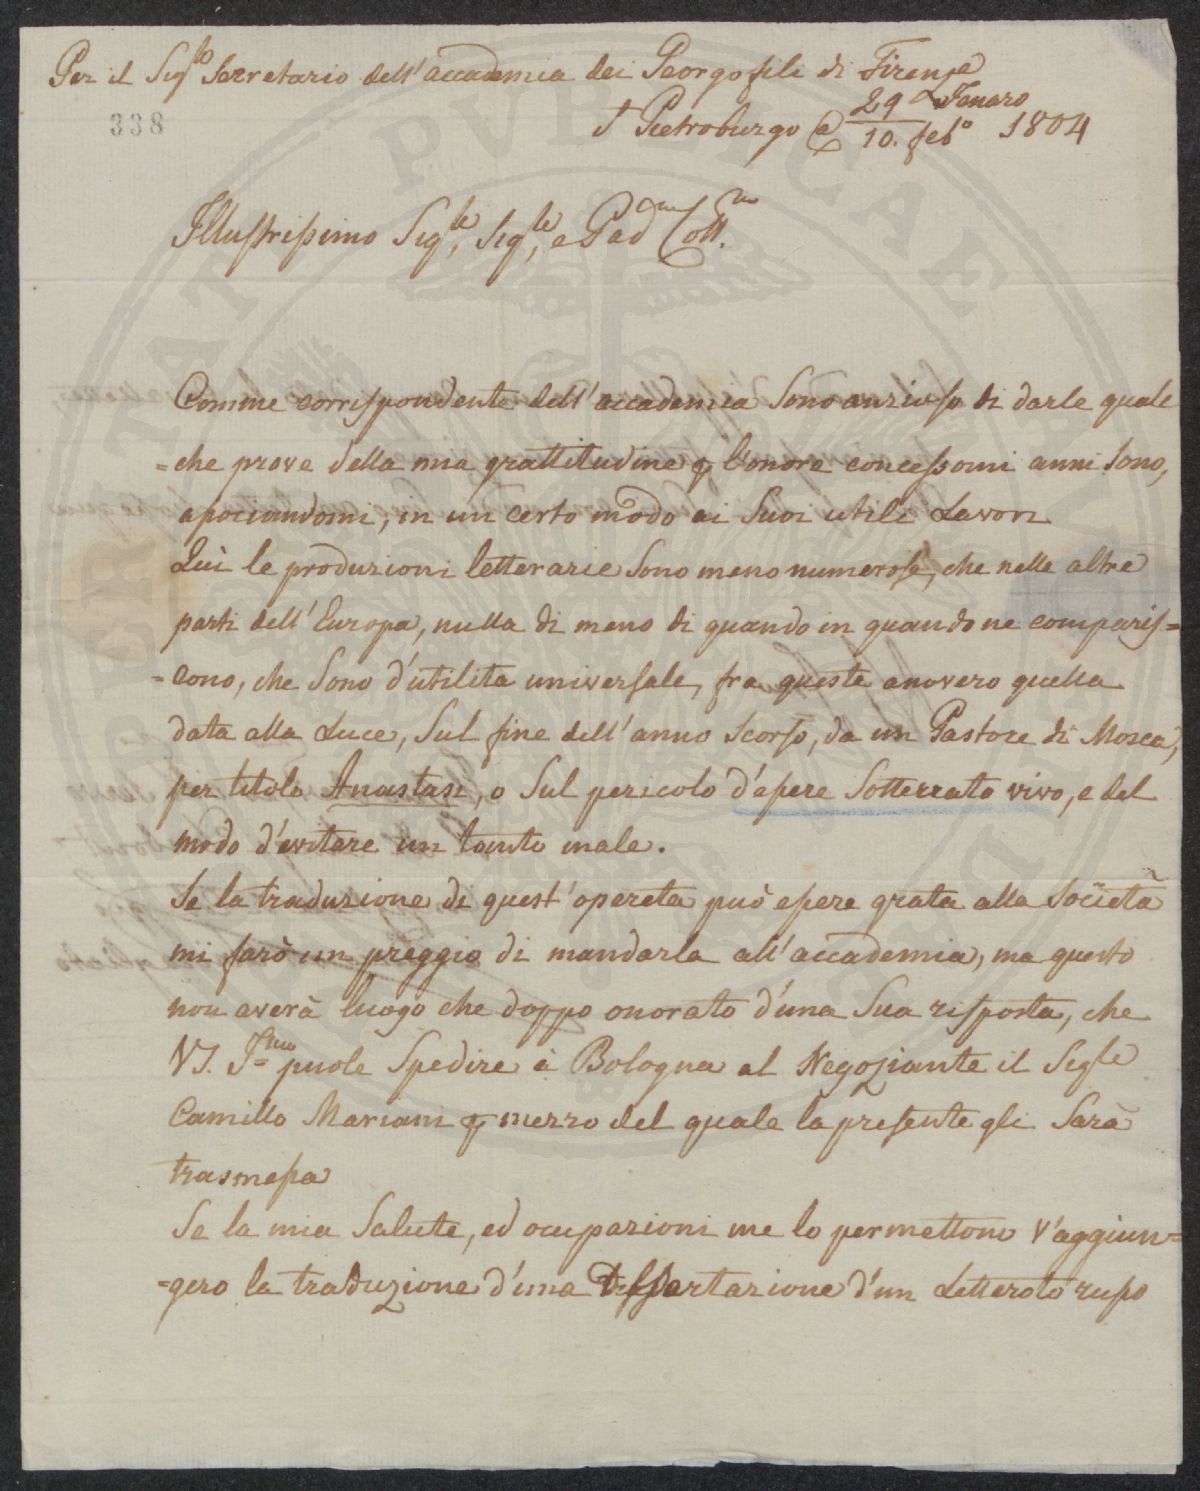 Per il Sigle Secretario dell'accademia dei Georgofili di Firenze
338
St Pietroburgo a 29 Jenaro / 10. febo 1804
Illustrissimo Sigle, Sigle, e Pad Coll.
Comme corrispondente dell'accademia sono anzioso di darle qual
=che prove della mia grattitudine p l'onore concessomi anni sono,
apociandomi, in un certo modo ai suoi utili Lavori
Qui le produzioni letterarie sono meno numerose, che nelle altre
parti dell'Europa, nulla di meno di quando in quando ne comparis=
=cono, che sono d'utilita universale, fra queste anovero quella
data alla Luce, sul fine dell'anno scorso, da un Pastore di Mosca,
per titolo Anastasi, o sul pericolo d'essere sotterrato vivo, e del
modo d'evitare un tanto male.
Se la traduzione di quest'opereta può essere grata alla Società
mi farò un preggio di mandarla all'accademia, ma questo
non averà luogo che doppo onorato d'una sua risposta, che
VS. Jma puole spedire à Bologna al Negoziante il Sigle
Camillo Mariani p mezzo del quale la presente gli sarà
trasmessa
Se la mia salute, ed ocupazioni me lo permettono v'aggiun=
=gero la traduzione d'una Dissertazione d'un Letterato russo